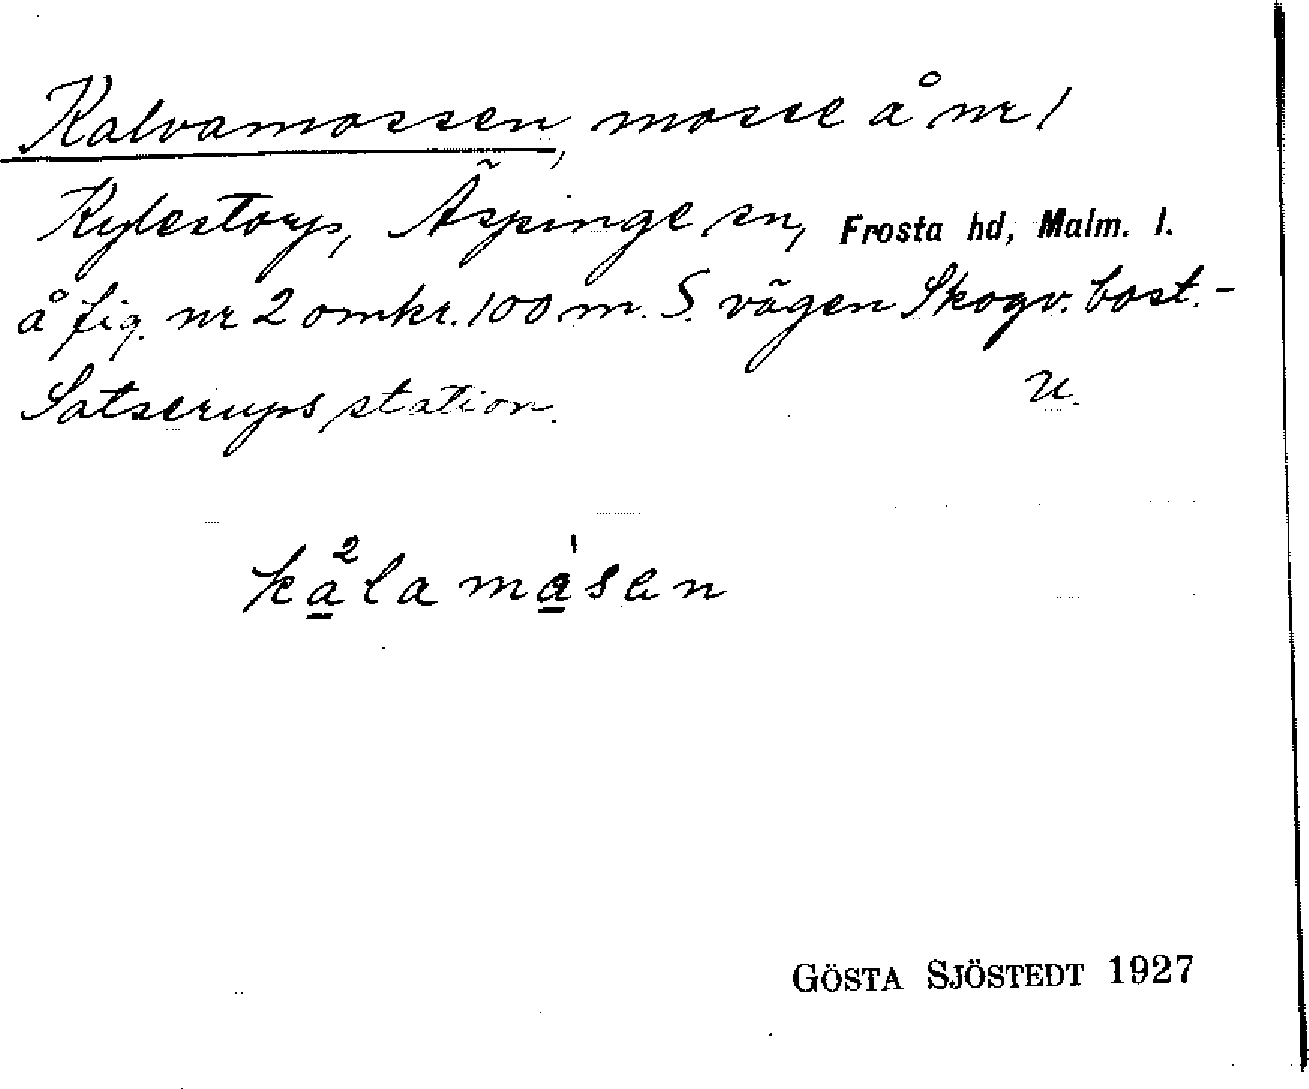 Kalvamossen, mosse å nr 1
Kylestorp, Äspinge sn, Frosta hd, Malm. l.
å fig. nr 2 omkr. 100 m. S. vägen Skogv. bost.-
Satserups station. U.
ka²lama¹sen
GÖSTA SJÖSTEDT 1927